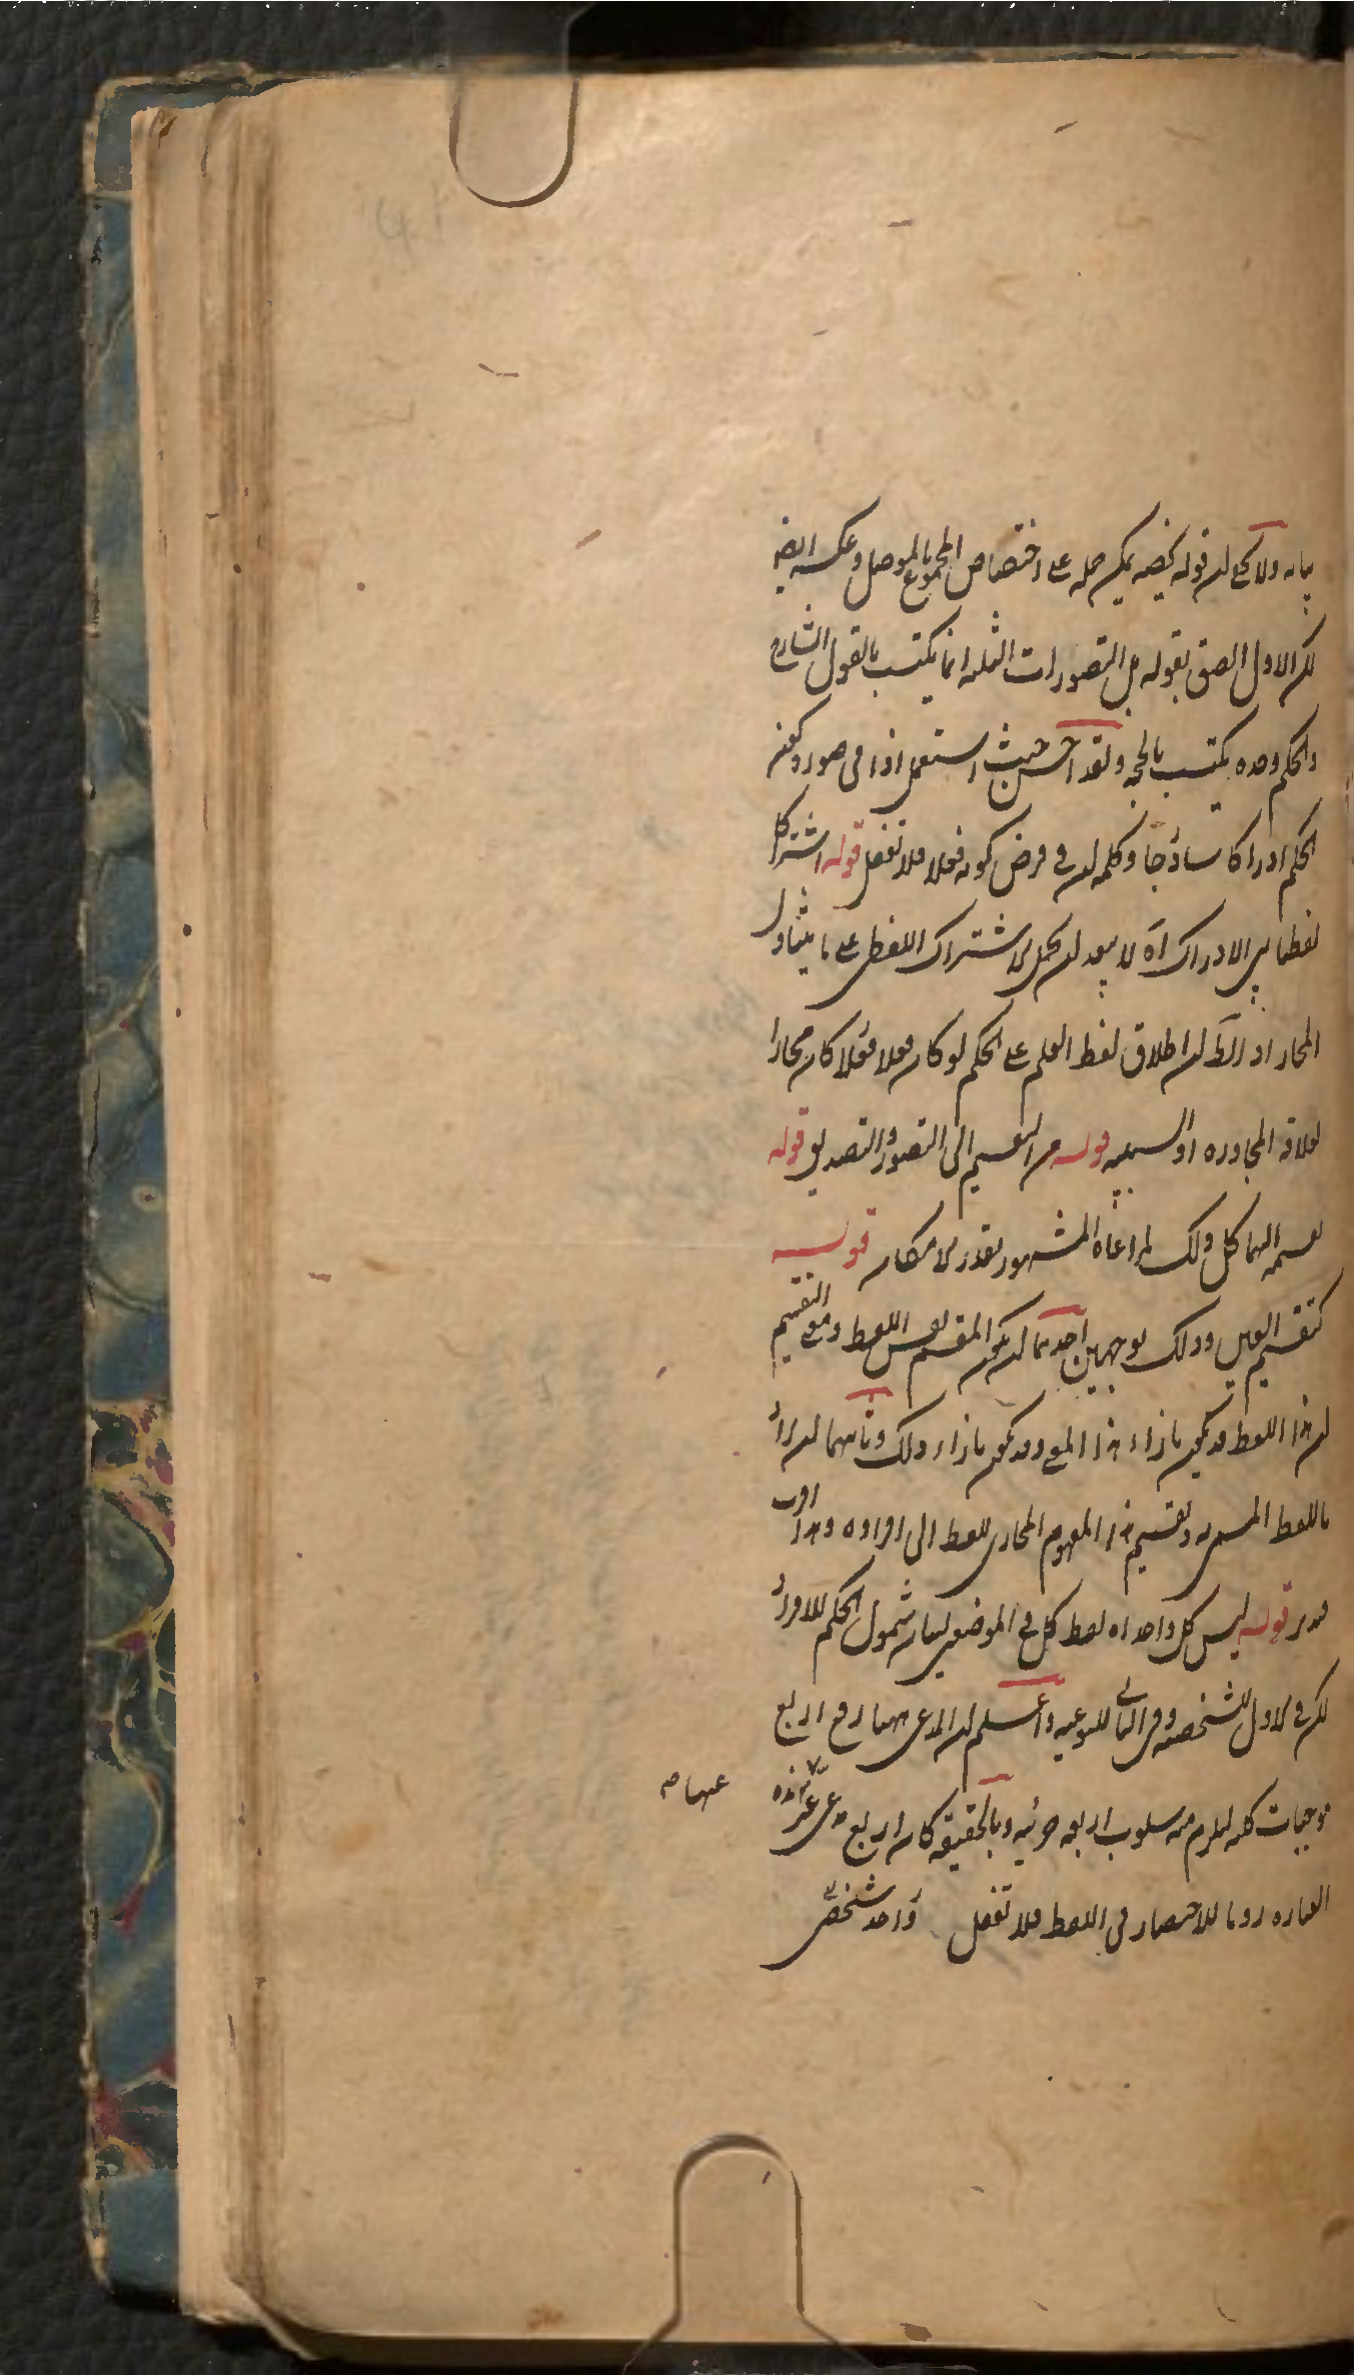 بيانه ولا يخفى ان قوله يخصه يمكن حمله على اختصاص المجموع بالموصل وعكسه ايضا
لكن الاول الصق بقوله بل التصورات الثلثة انما يكتسب بالقول الشارح
والحكم وحده يكتسب بالحجة ولقد احسن حيث استعمل اذا في صورة كون
الحكم ادراكا ساذجا وكلمة ان في فرض كونه فعلا فلا تغفل قوله اشتراكا
لفظيا بين الادراك اه لا يبعد ان يحمل الاشتراك اللفظي على ما يتناول
المجاز اذ الظ ان اطلاق لفظ العلم على الحكم لو كان فعلا فعلا كان مجازا
لعلاقة المجاورة او السببية قوله من التقسيم الى التصور والتصديق قوله
تقسيمه اليهما كل ذلك لمراعاة المشهور بقدر الامكان قوله
كتقسيم العين وذلك بوجهين احدهما ان يكون المقسم نفس اللفظ ومعنى التقسيم
ان هذا اللفظ قد يكون بازاء هذا المعنى وقد يكون بازاء ذلك وثانيهما ان يراد
باللفظ المسمى به وتقسيم هذا المفهوم المجازي للفظ الى افراده وهذا اقرب
قوله ليس كل واحد اه لفظ كل في الموضعين لبيان شمول الحكم للافراد
لكن في الاول للشخصية وفي الثاني للنوعية واعلم ان المدعى ههنا رفع اربع
موجبات كلية ليلزم منه سلوب اربعة جزئية وبالحقيقة كان اربع
عنها صح
العبارة روما للاختصار في اللفظ فلا تغفل واحد شخصي